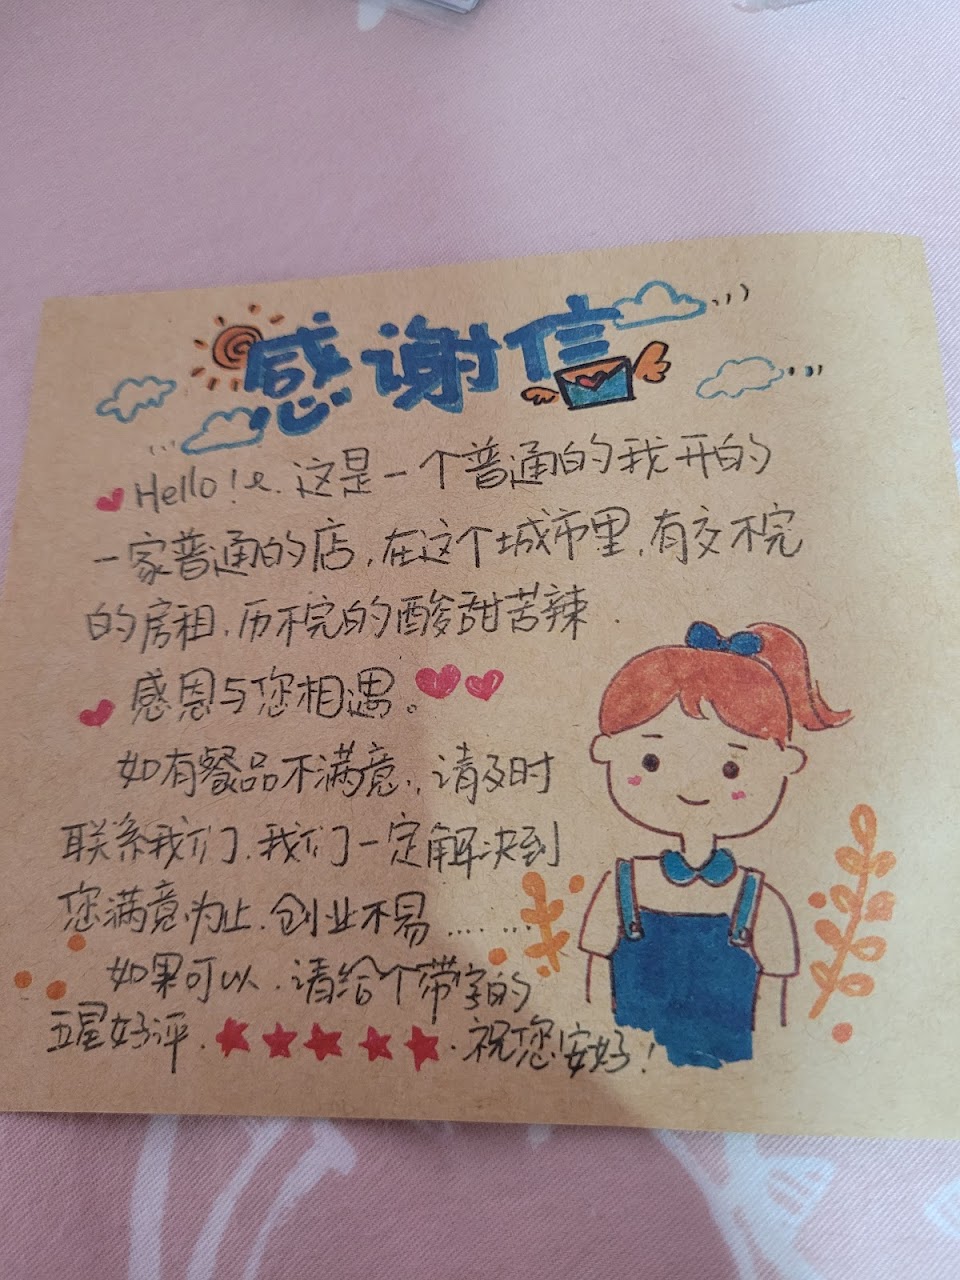 感谢信
Hello!这是一个普通的我开的
一家普通的店,在这个城市里,有交不完
的房租,历不完的酸甜苦辣.
感恩与您相遇。
如有餐品不满意,请及时
联系我们,我们一定解决到
您满意为止.创业不易……
如果可以.请给个带字的
五星好评.★★★★★.祝您安好!